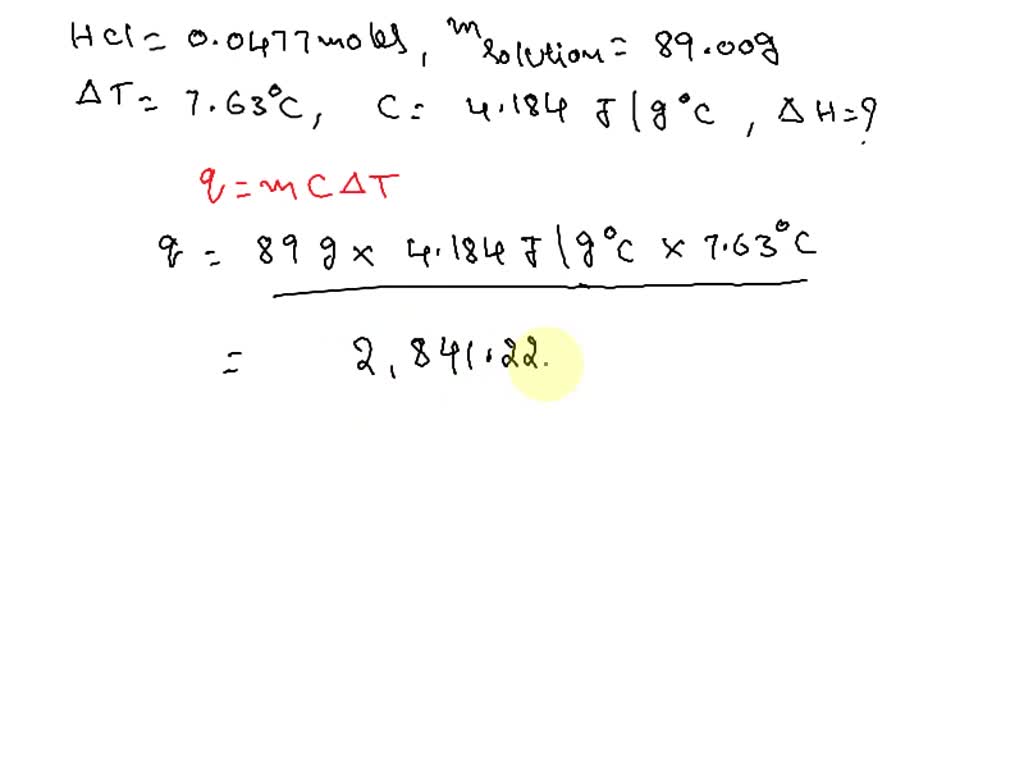 HCl = 0.0477 moles, m solution = 89.00g
ΔT = 7.63°C, C = 4.184 J/g°C, ΔH = ?
q = mCΔT
q = 89 g × 4.184 J/g°C × 7.63°C
= 2,841.22